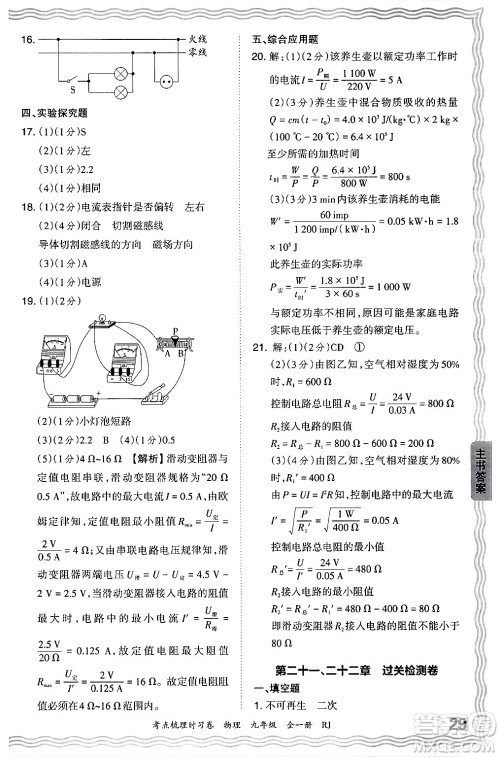 16.
火线
零线
S
四、实验探究题
17. (1)(1分)S
(2)(1分)左
(3)(1分)2.2
(4)(1分)相同
18. (1)(2分)电流表指针是否偏转 左右
(2)(4分)闭合 切割磁感线
导体切割磁感线的方向 磁感线方向
(3)(1分)电源
19. (1)(2分)
P
A B
(2)(1分)小灯泡短路
(3)(2分)2.2 B (4)(1分)0.5
(5)(1分)4 Ω~16 Ω 【解析】滑动变阻器与
定值电阻串联,滑动变阻器规格为“20 Ω
0.5 A”,故电路中的最大电流I=0.5 A,由欧
姆定律知,定值电阻最小阻值R定min=U定/I=
2 V/0.5 A=4 Ω;又由串联电路电压规律知,滑动
变阻器两端电压U滑=U-U定=4.5 V-
2 V=2.5 V,当滑动变阻器接入电路的阻值
最大时,电路中的最小电流I'=U滑/R滑=
2.5 V/20 Ω=0.125 A,故定值电阻最大阻值
R定max=U定/I'=2 V/0.125 A=16 Ω,故定值电阻的
取值范围为4 Ω~16 Ω。
五、综合应用题
20. 解:(1)(2分)该养生壶以额定功率工作时
的电流I=P/U=1 100 W/220 V=5 A
(2)(3分)养生壶中混合物质吸收的热量
至少所需的加热时间
(3)(4分)3 min内该养生壶消耗的电能
W'=60 imp/1 200 imp/(kW·h)=0.05 kW·h=1.8×10⁵ J
此养生壶的实际功率
P实=W'/t加'=1.8×10⁵ J/3×60 s=1 000 W
功率不相同,可能的原因是家庭电路
实际电压低于养生壶的额定电压。
21. 解:(1)(2分)CD ①
(2)(3分)由图乙知,空气相对湿度为50%
时,R₁=600 Ω
控制电路总电阻R总=U/I=24 V/0.03 A=800 Ω
R₂接入电路的阻值
R₂=R总-R₁=800 Ω-600 Ω=200 Ω
(3)(4分)由图乙知,空气相对湿度为80%
时,R₁'=400 Ω
由P=UI、U=IR得控制电路的最大电流
I'=√P/R₁'=√1 W/400 Ω=0.05 A
控制电路的总电阻的最小值
R总'=U/I'=24 V/0.05 A=480 Ω
R₂接入电路的最小阻值
R₂'=R总'-R₁'=480 Ω-400 Ω=80 Ω
即滑动变阻器接入电路的阻值不得小
于80 Ω
第二十一、二十二章 过关检测卷
一、填空题
1. 不可再生 二次
主书答案
考点梳理时习卷 物理 九年级 全一册 RJ
29